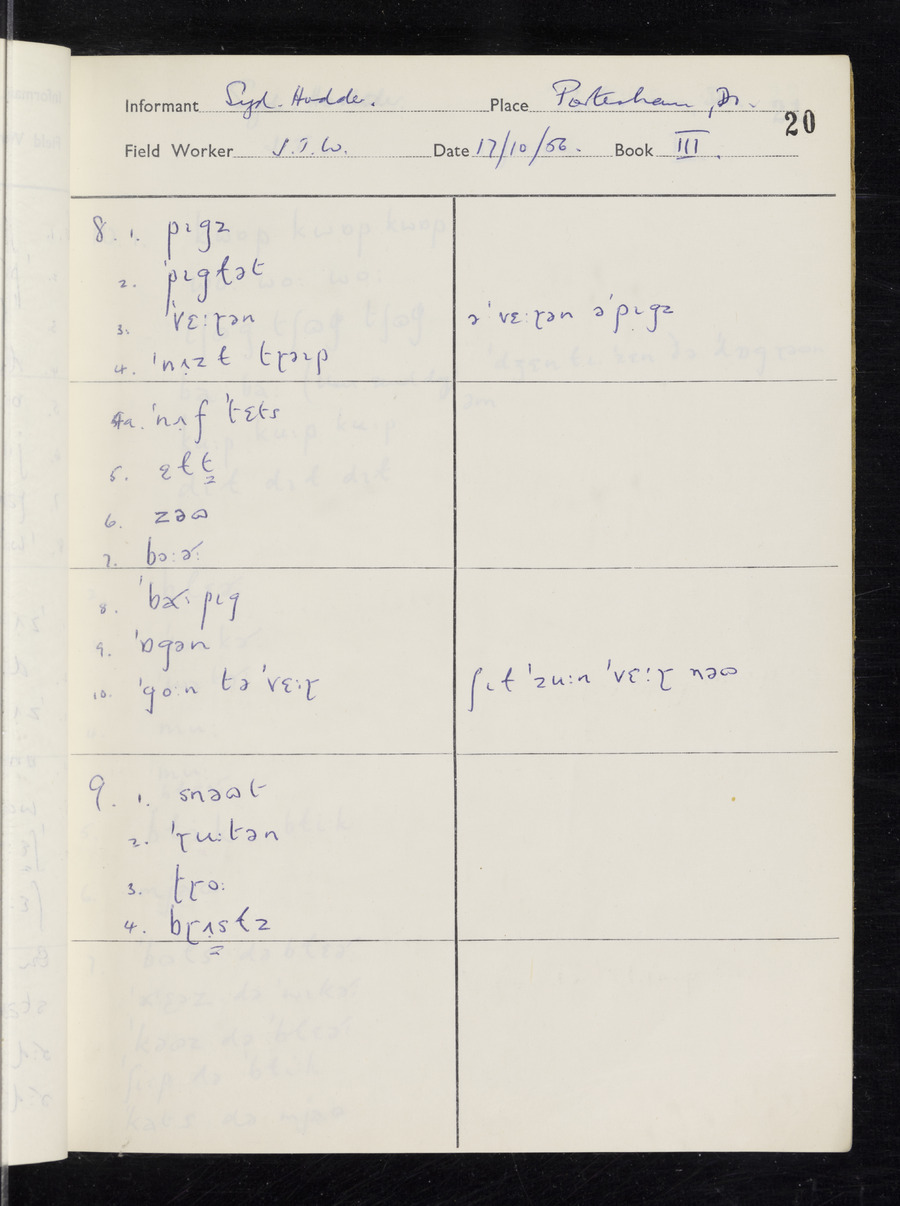 Informant Syd. Hodder. Place Portesham, Do.
20
Field Worker J.T.W. Date 17/10/56. Book III.
8. 1. pɪgz
2. ˈpɪgɫət
3. ˈvɛːɽən əˈvɛːɽən əˈpɪgz
4. ˈnʌzɫ tɽəɪp
4a. ˈnʌf ˈtɛts
5. ɛɫt
6. zəɷ
7. bɔːəʴː
8. ˈbəʴː pɪg
9. ˈɒgən
10. ˈgoːn tə ˈvɛːɽ ʃɪt ˈzuːn ˈvɛːɽ nəɷ
9. 1. snəɷt
2. ˈɽuːtən
3. tɽoː
4. bɽʌsɫz